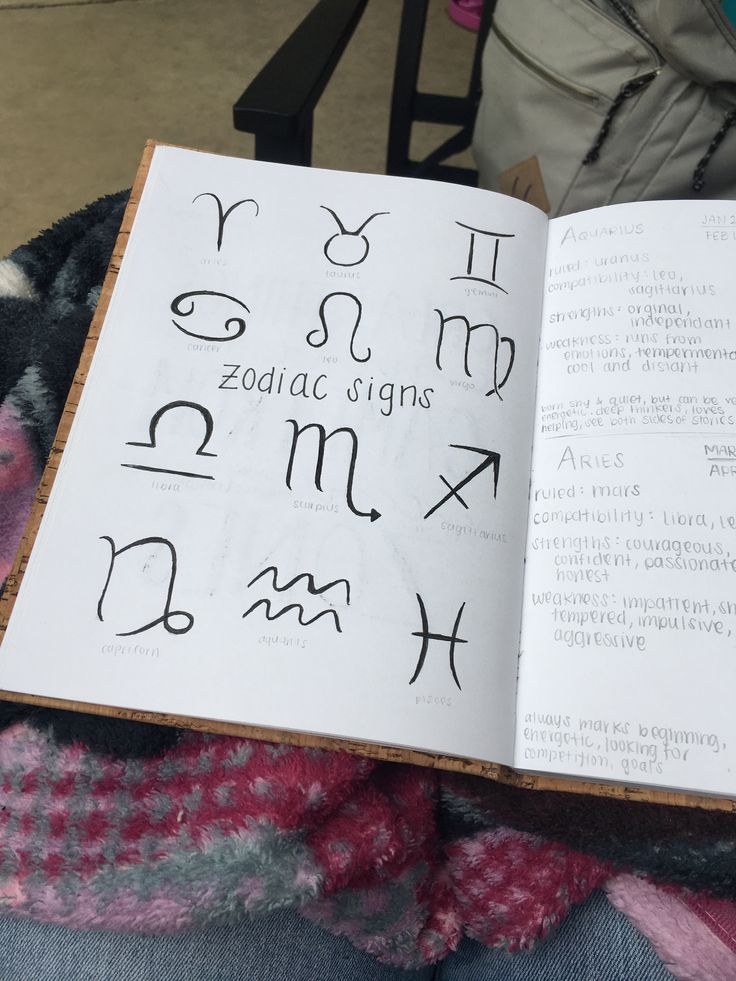 aries
taurus
gemini
cancer
leo
virgo
Zodiac signs
libra
scorpius
sagittarius
capricorn
aquarius
pisces
AQUARIUS
JAN 2
FEB 1
ruled: uranus
compatibility: leo,
sagittarius
strengths: orginal,
independant
weakness: runs from
emotions, tempermenta
cool and distant
born shy & quiet, but can be ve
energetic. deep thinkers, loves
helping, see both sides of stories
ARIES
MAR
APR
ruled: mars
compatibility: libra, le
strengths: courageous,
confident, passionate
honest
weakness: impatient, sh
tempered, impulsive,
aggressive
always marks beginning,
energetic, looking for
competition, goals